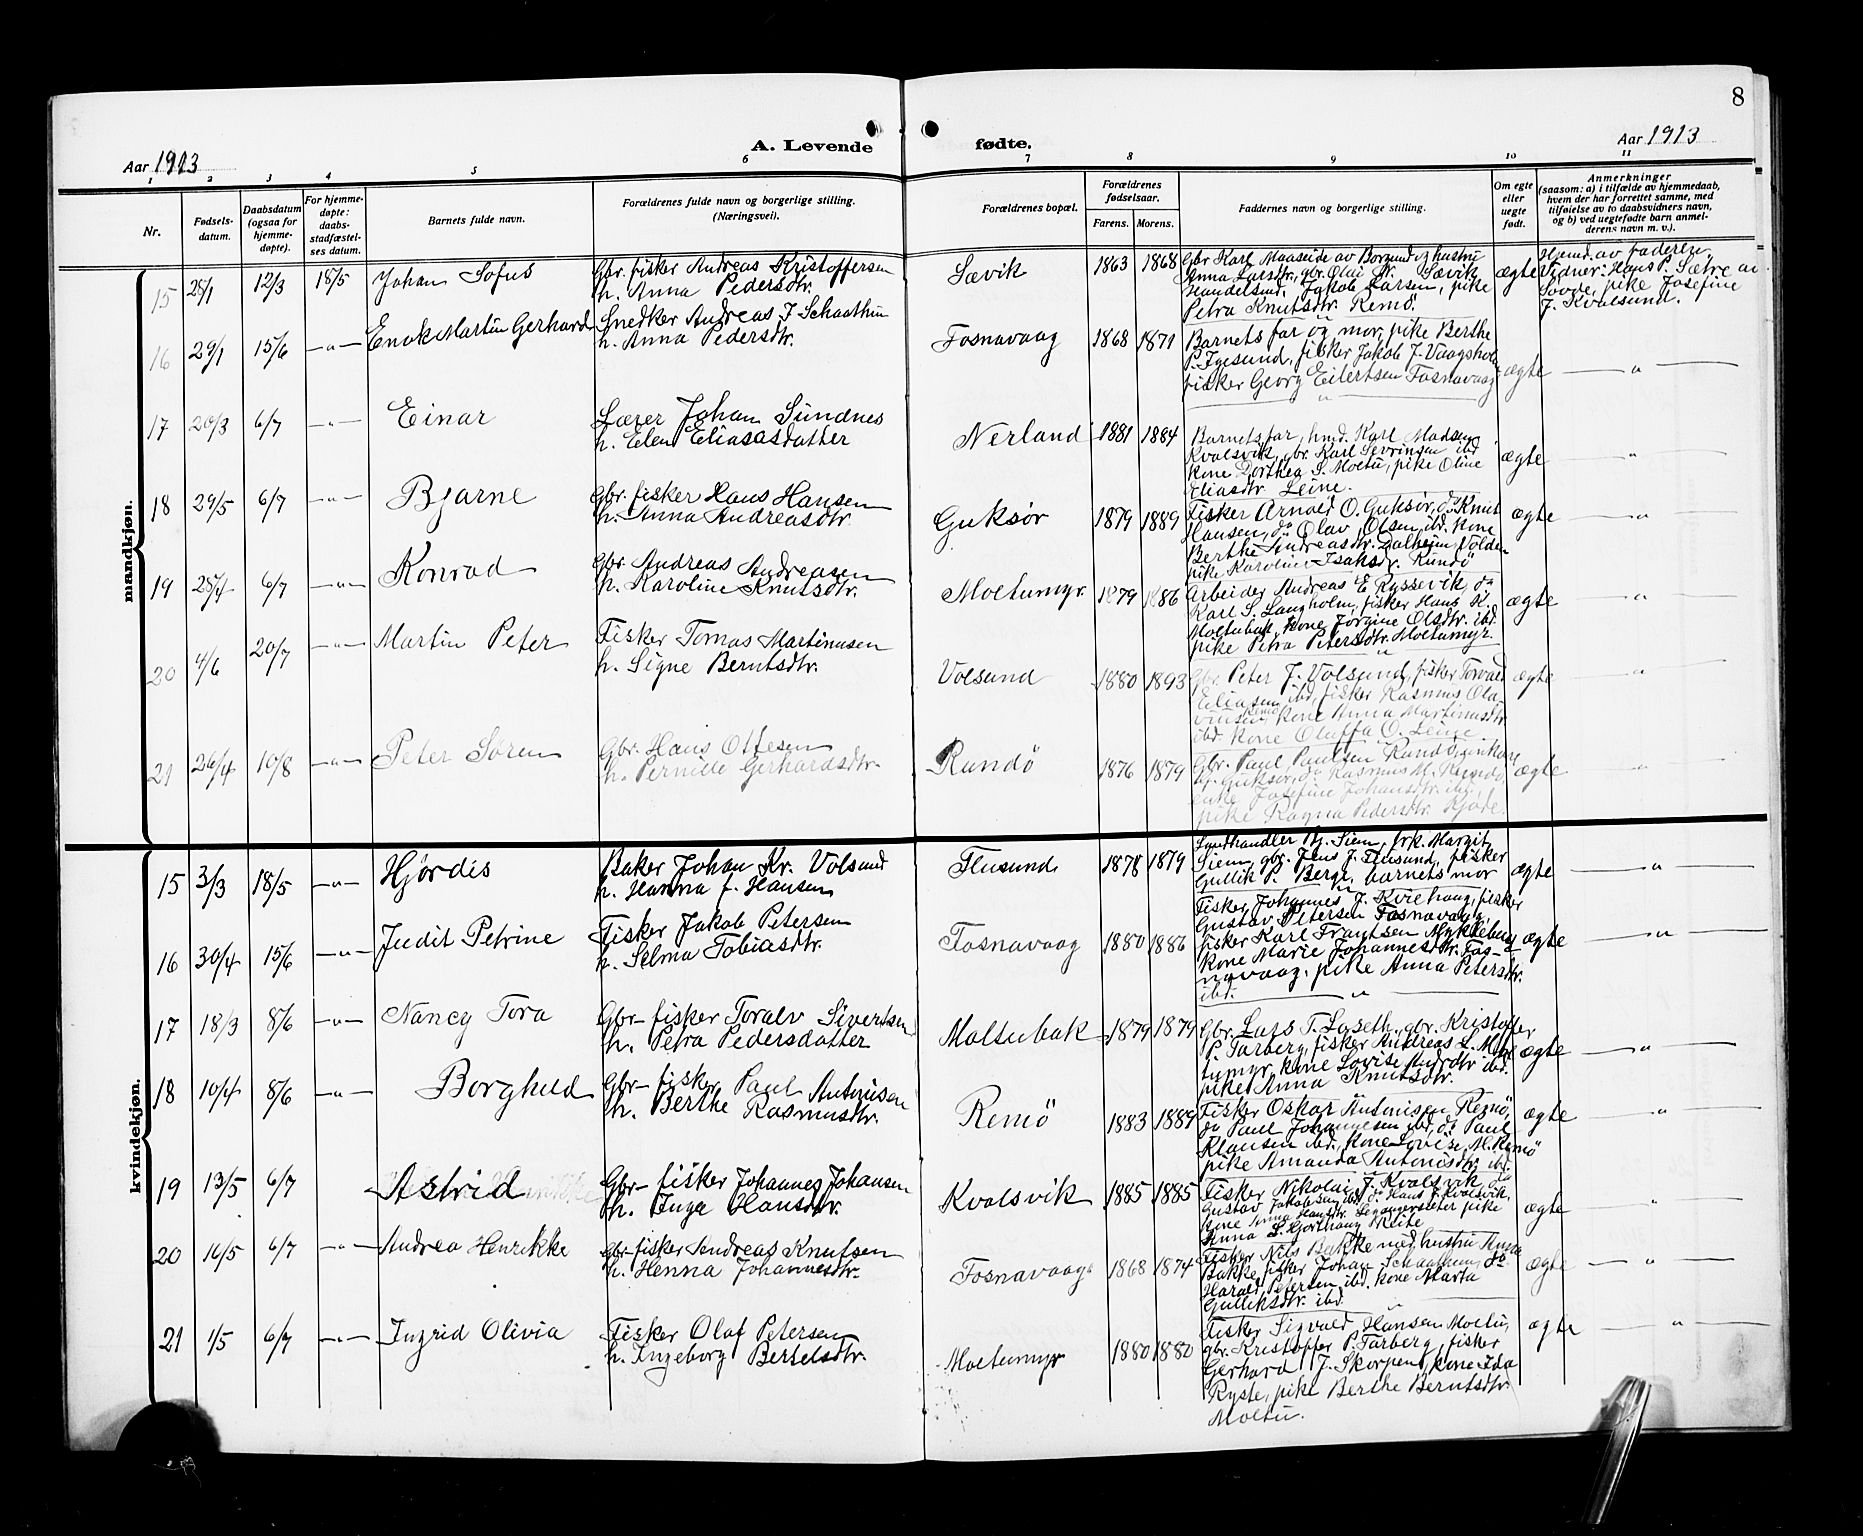 8
Aar 1913
A. Levende fødte.
Aar 1913
1 2 3 4 5 6 7 8 9 10 11
Nr.
Fødsels-
datum.
Daabsdatum
(ogsaa for
hjemme-
døpte).
For hjemme-
døpte:
daabs-
stadfæstel-
ses datum.
Barnets fulde navn.
Forældrenes fulde navn og borgerlige stilling.
(Næringsvei).
Forældrenes bopæl.
Forældrenes
fødselsaar.
Farens. Morens.
Faddernes navn og borgerlige stilling.
Om egte
eller
uegte
født.
Anmerkninger
(saasom: a) i tilfælde av hjemmedaab,
hvem der har forrettet samme, med
tilføielse av to daabsvidners navn,
og b) ved uegtefødte barn anmel-
derens navn m. v.).
mandkjøn.
15 28/1 12/3 18/5 Johan Sofus
Gbr. fisker Andreas Kristoffersen
h. Anna Pedersdtr.
Sævik 1863 1868
Gbr Karl Maaseide av Borgund og hustru
Anna Larsdtr, gbr. Olai Sævik
Handelsmd. Jakob Larsen, pike
Petra Knutsdtr. Remö
ægte
Hjmd. av faderen,
Vidner: Hans P. Sætre av
Sovde, pike Josefine
J. Kvalsund.
16 29/1 15/6 -"- Enok Martin Gerhard
Snedker Andreas J Schaathun
h. Anna Pedersdtr.
Fosnavaag 1868 1871
Barnets far og mor, pike Berthe
P. Igesund, fisker Jakob J. Vaagsholm
fisker Georg Eilertsen Fosnavaag
ægte -"-
17 20/3 6/7 -"- Einar
Lærer Johan Sundnes
h. Elen Eliasasdatter
Nerland 1881 1884
Barnets far, hmd. Karl Madsen
Kvalsvik, gbr. Karl Sevrinsen ibd
kone Dorthea S. Moltu, pike Oline
Eliasdtr Leine.
ægte -"-
18 29/5 6/7 -"- Bjarne
Gbr. fisker Hans Hansen
h. Anna Andreasdtr.
Guksör 1879 1889
Fisker Arnold O. Guksör, do Knut
Hansen, do Olav Olsen, ibd. kone
Berthe Andreasdtr. Dalheim, Volden
pike Karoline Isaksdr. Rundö
ægte -"-
19 28/4 6/7 -"- Konrad
Gbr. Andreas Andreasen
h. Karoline Knutsdtr.
Moltumyr. 1879 1886
Arbeider Andreas E Ryssevik, do
Karl S. Langholm, fisker Hans K.
Moltubak, kone Jorgine Olsdtr. ibd.
pike Petra Petersdtr. Moltumyr.
ægte -"-
20 4/6 20/7 -"- Martin Peter
Fisker Tomas Martinusen
h. Signe Berntsdtr.
Volsund 1880 1893
Gbr. Peter J. Volsund, fisker Torvald
Eliasen ibd, fisker Rasmus Ola-
vinsen Remö, kone Anna Martinusdtr
ibd. kone Oluffa O. Leine
ægte -"-
21 26/4 10/8 -"- Peter Soren
Gbr. Hans Ottesen
h. Pernille Gerhardsdtr.
Rundö 1876 1879
Gbr. Paul Paulsen Rundö,
Guksör, do Rasmus M. Rundö
enke Josefine Johansdtr. ibd
pike Ragna Pedersdtr.
ægte -"-
kvindekjøn.
15 3/3 18/5 -"- Hjördis
Baker Johan Kr. Volsund
h. Hanna f. Hansen
Flusund 1878 1879
Landhandler Siem, frk. Margit
Siem, gbr. Jens J. Flusund, fisker
Gullik P. Berge, barnets mor
ægte -"-
16 30/4 15/6 -"- Judit Petrine
Fisker Jakob Petersen
h. Selma Tobiasdtr.
Fosnavaag 1880 1886
Fisker Johannes J. Kviehaug, fisker
Gustav Petersen Fosnavaag,
fisker Karl Frantsen Myklebug
kone Marie Johannesdtr. Fos-
navaag. pike Anna Petersdtr.
ibd.
ægte -"-
17 18/3 8/6 -"- Nancy Tora
Gbr-fisker Toralv Sivertsen
h. Petra Pedersdatter
Moltubak 1879 1879
Gbr. Lars T. Laseth, gbr. Kristoffer
P. Tarberg, fisker Andreas L. Mol-
tumyr, kone Lovise ibd.
pike Anna Knutsdtr.
ægte -"-
18 10/4 8/6 -"- Borghild
Gbr-fisker Paul Antonisen
h. Berthe Rasmusdtr.
Remö 1883 1889
Fisker Oskar Antonisen Remö,
do Paul Johannesen ibd, do Paul
Klausen ibd, kone Lovise M. Remö
pike Amanda Antonisdtr. ibd.
ægte -"-
19 13/5 6/7 Astrid
Gbr-fisker Johannes Johansen
h. Inga Hansdtr.
Kvalsvik 1885 1885
Fisker Nikolai J. Kvalsvik, do
Gustav Jakobsen ibd, do Hans J. Kvalsvik,
kone Anna Hansdtr. pike
Anna L. Gjorthaug Reite
ægte -"-
20 16/5 6/7 -"- Andrea Henrikke
Gbr-fisker Andreas Knutsen
h. Henna Johannesdtr.
Fosnavaag 1868 1874
Fisker Nils Bakke med hustru Anna
Bakke, fisker Johan Schaathun, do
Harald Petersen ibd. kone Marta
Gulliksdtr. ibd.
ægte -"-
21 1/5 6/7 -"- Ingrid Olivia
Fisker Olaf Petersen
h. Ingeborg Bertelsdtr.
Moltumyr 1880 1880
Fisker Sigvald Hansen Moltu,
gbr. Kristoffer P. Tarberg, fisker
Gerhard J. Skorpen, kone Ida
Ryste, pike Berthe Berntsdtr.
Moltu.
ægte -"-